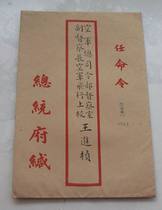 任命令
空軍總司令部督察室
副督察長空軍飛行上校
王進楨
總統府緘